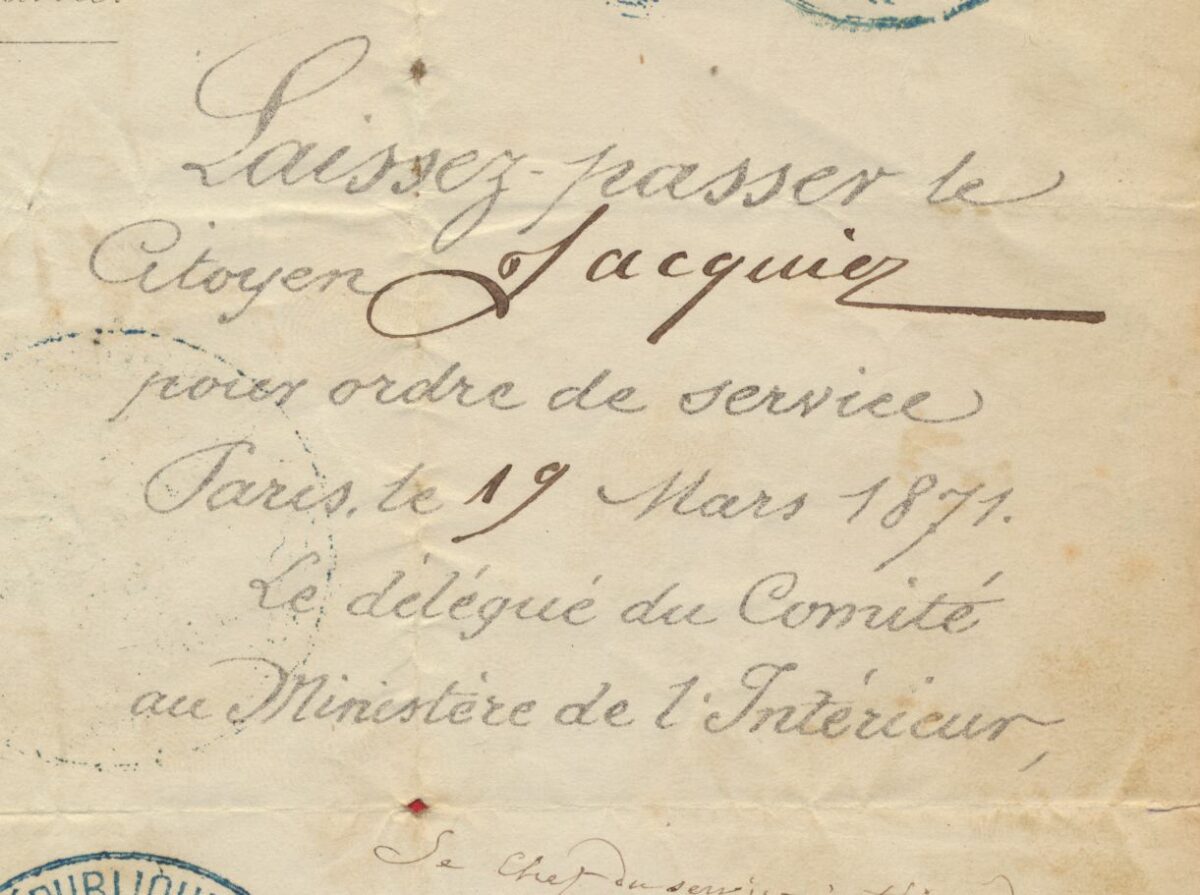 Laissez-passer le
Citoyen Jacquiez
pour ordre de service
Paris, le 19 Mars 1871.
Le délégué du Comité
au Ministère de l'Intérieur,
Le Chef du service
RÉPUBLIQUE